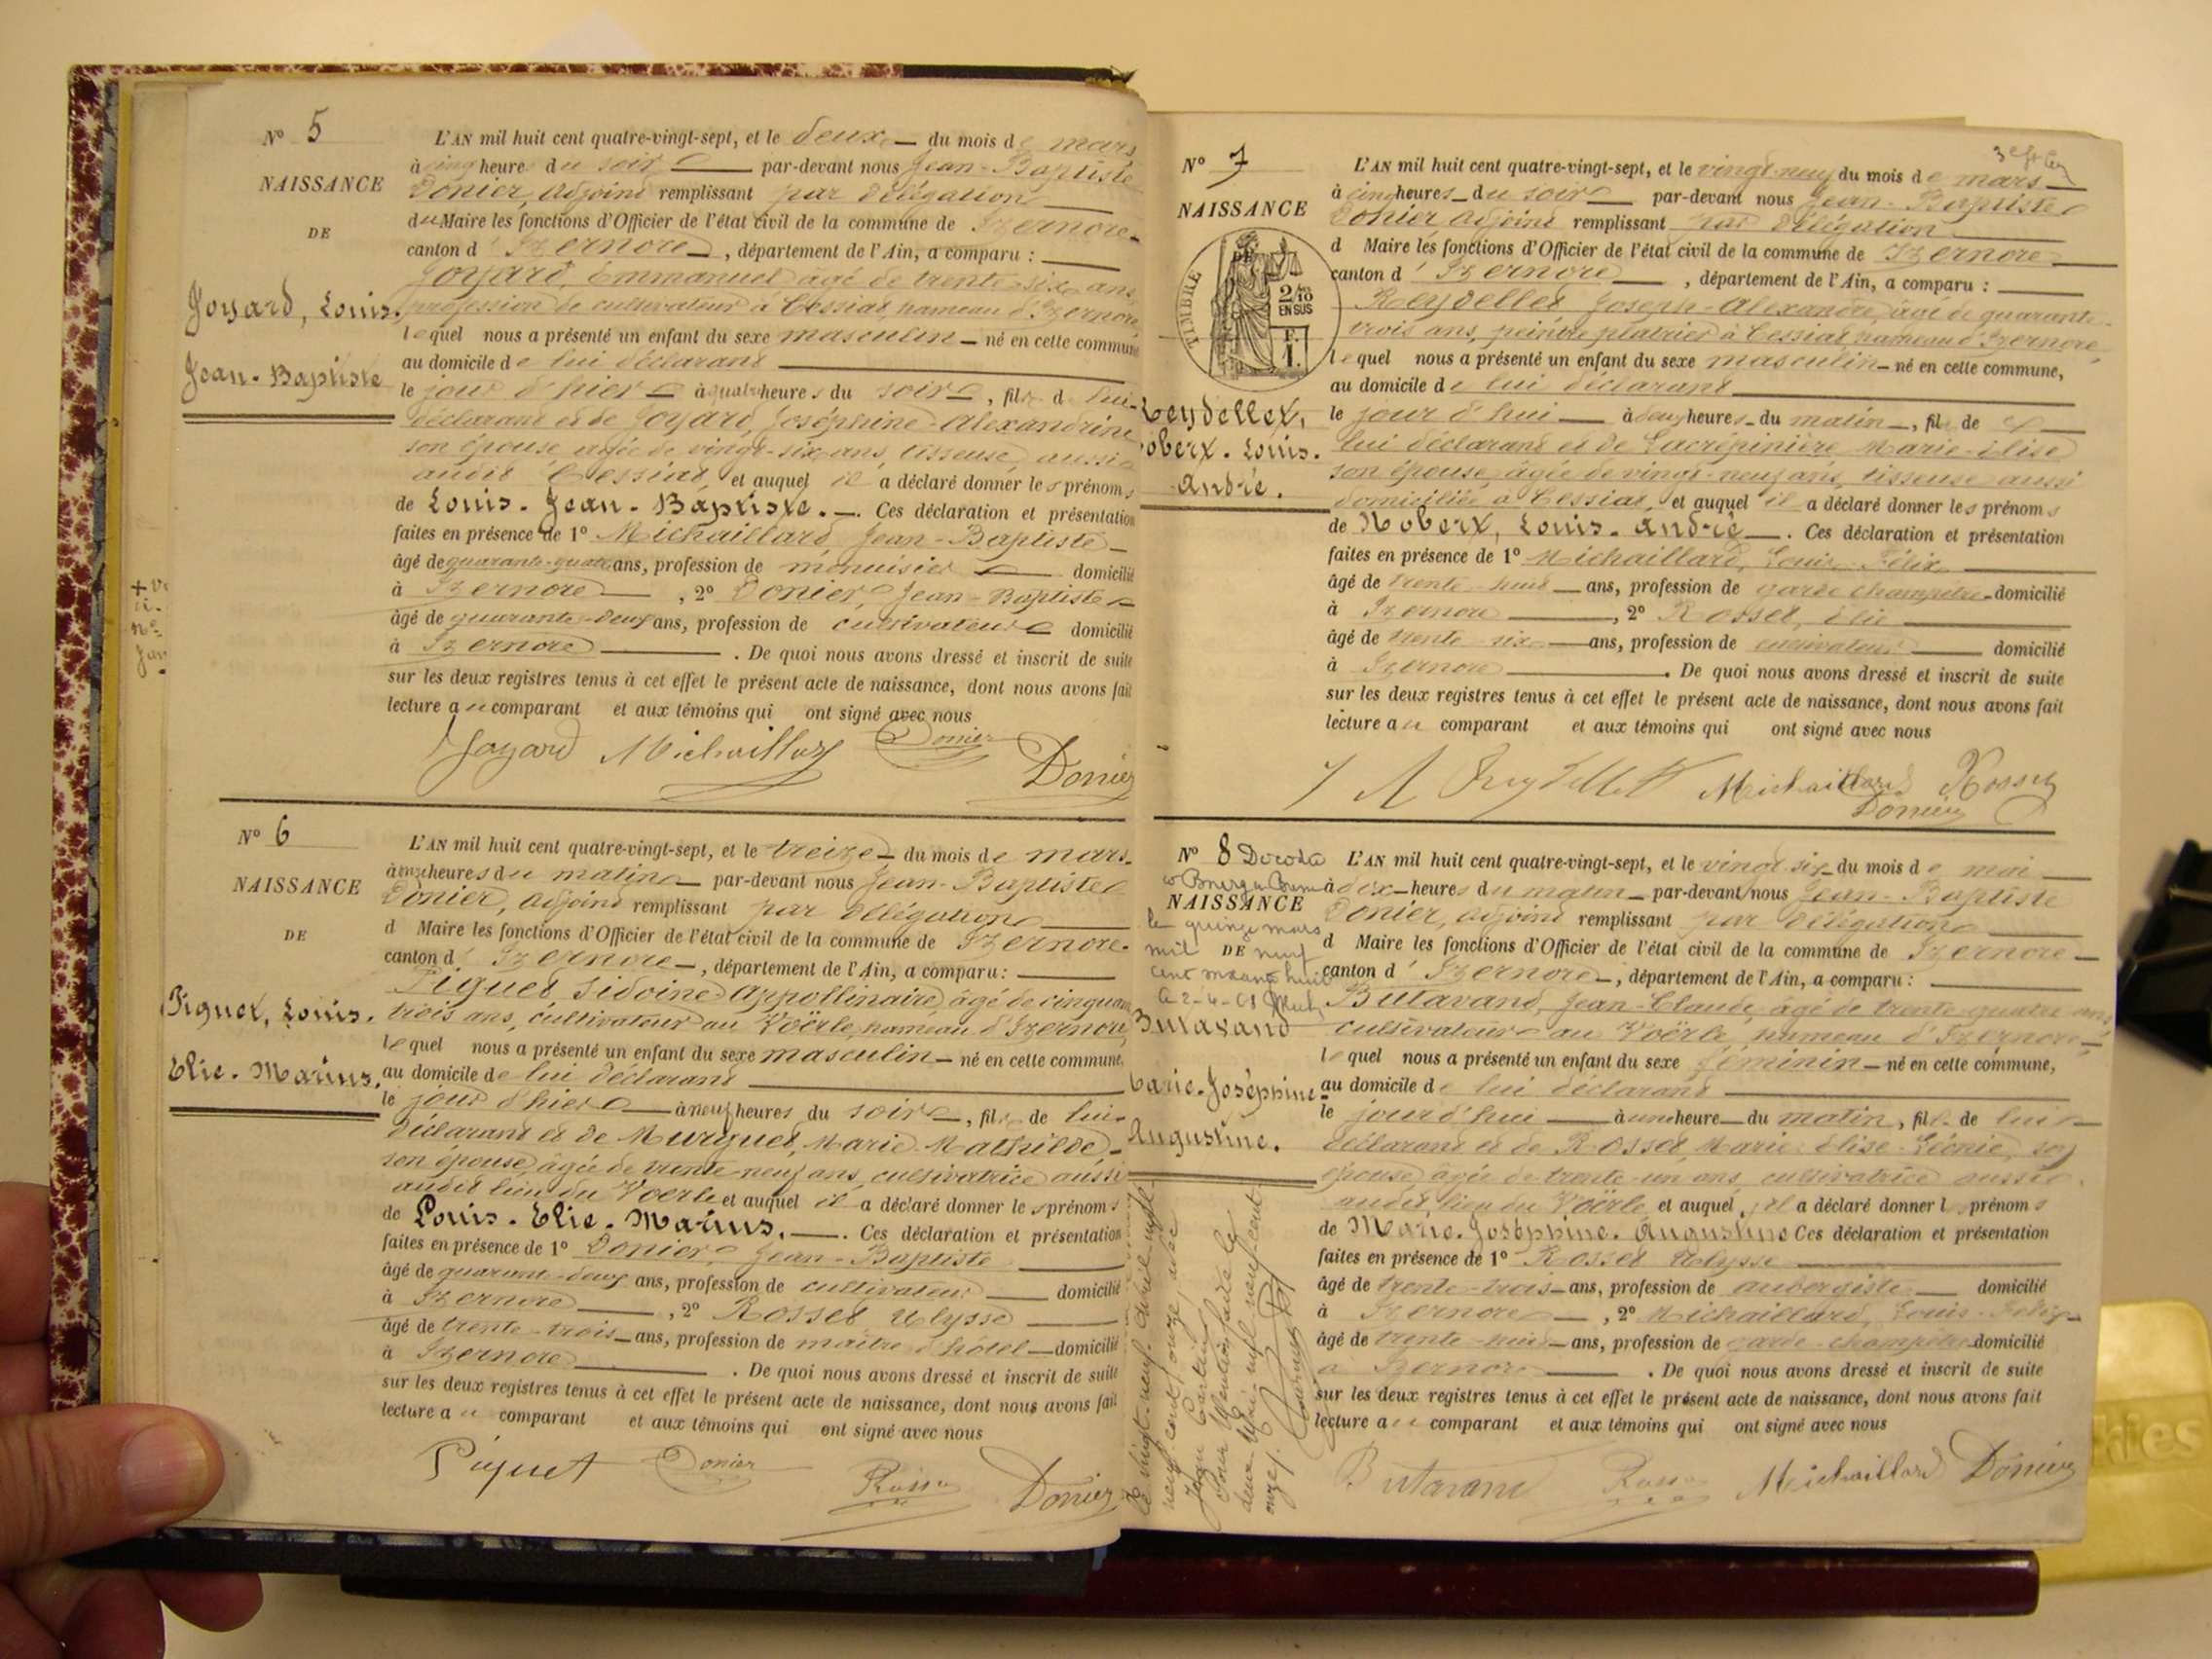 N° 5
NAISSANCE
DE
Joyard, Louis.
Jean-Baptiste
L'AN mil huit cent quatre-vingt-sept, et le deux — du mois de mars
à cinq heures du soir — par-devant nous Jean-Baptiste
Donier, adjoint remplissant par délégation
du Maire les fonctions d'Officier de l'état civil de la commune de Izernore
canton d'Izernore —, département de l'Ain, a comparu :
Joyard, Emmanuel âgé de trente-six ans,
profession de cultivateur à Cessiat, hameau d'Izernore,
lequel nous a présenté un enfant du sexe masculin — né en cette commune
au domicile de lui déclarant
le jour d'hier — à quatre heures du soir —, fils de lui
déclarant et de Joyard, Joséphine-Alexandrine
son épouse âgée de vingt-six ans, tisseuse, aussi
audit Cessiat, et auquel il a déclaré donner les prénoms
de Louis-Jean-Baptiste. —. Ces déclaration et présentation
faites en présence de 1° Michaillard, Jean-Baptiste —
âgé de quarante-quatre ans, profession de menuisier — domicilié
à Izernore —, 2° Donier, Jean-Baptiste
âgé de quarante-deux ans, profession de cultivateur domicilié
à Izernore — . De quoi nous avons dressé et inscrit de suite
sur les deux registres tenus à cet effet le présent acte de naissance, dont nous avons fait
lecture au comparant et aux témoins qui ont signé avec nous
Joyard Michaillard Donier
Donier
N° 6
NAISSANCE
DE
Piguet, Louis.
Elie. Marius.
L'AN mil huit cent quatre-vingt-sept, et le treize — du mois de mars
à onze heures du matin — par-devant nous Jean-Baptiste
Donier, adjoint remplissant par délégation
d Maire les fonctions d'Officier de l'état civil de la commune de Izernore
canton d'Izernore —, département de l'Ain, a comparu :
Piguet Sidoine Appollinaire, âgé de cinquante
trois ans, cultivateur au Voërle, hameau d'Izernore,
lequel nous a présenté un enfant du sexe masculin — né en cette commune,
au domicile de lui déclarant
le jour d'hier — à neuf heures du soir —, fils de lui
déclarant et de Murguet, Marie-Mathilde, —
son épouse, âgée de trente-neuf ans, cultivatrice aussi
audit lieu du Voërle et auquel il a déclaré donner les prénoms
de Louis. Elie. Marius. —. Ces déclaration et présentation
faites en présence de 1° Donier, Jean-Baptiste
âgé de quarante-deux ans, profession de cultivateur — domicilié
à Izernore —, 2° Rosset Ulysse
âgé de trente-trois — ans, profession de maître d'hôtel — domicilié
à Izernore — . De quoi nous avons dressé et inscrit de suite
sur les deux registres tenus à cet effet le présent acte de naissance, dont nous avons fait
lecture au comparant et aux témoins qui ont signé avec nous
Piguet Donier Rosset Donier
N° 7
NAISSANCE
DE
TIMBRE
2/10
EN SUS
F.
1.
Reydellet,
Robert. Louis.
André.
L'AN mil huit cent quatre-vingt-sept, et le vingt-neuf du mois de mars —
à cinq heures du soir — par-devant nous Jean-Baptiste
Donier adjoint remplissant par délégation
d Maire les fonctions d'Officier de l'état civil de la commune de Izernore
canton d'Izernore —, département de l'Ain, a comparu :
Reydellet Joseph-Alexandre âgé de quarante-
trois ans, peintre plâtrier à Cessiat hameau d'Izernore,
lequel nous a présenté un enfant du sexe masculin — né en cette commune,
au domicile de lui déclarant
le jour d'hui — à deux heures du matin —, fils de
lui déclarant et de Lacrépinière Marie-Elise
son épouse, âgée de vingt-neuf ans, tisseuse aussi
domiciliée à Cessiat, et auquel il a déclaré donner les prénoms
de Robert, Louis. André —. Ces déclaration et présentation
faites en présence de 1° Michaillard, Louis-Félix
âgé de trente-huit — ans, profession de garde champêtre domicilié
à Izernore —, 2° Rosset, Elie
âgé de trente-six — ans, profession de cultivateur — domicilié
à Izernore — . De quoi nous avons dressé et inscrit de suite
sur les deux registres tenus à cet effet le présent acte de naissance, dont nous avons fait
lecture au comparant et aux témoins qui ont signé avec nous
J A Reydellet Michaillard Rosset
Donier
N° 8
Décédée
à Bourg
NAISSANCE
le quinze mars
mil DE neuf
cent soixante huit
Butavand
Marie-Joséphine
Augustine.
L'AN mil huit cent quatre-vingt-sept, et le vingt-six du mois de mai
à dix — heures du matin — par-devant nous Jean-Baptiste
Donier, adjoint remplissant par délégation
d Maire les fonctions d'Officier de l'état civil de la commune de Izernore
canton d'Izernore —, département de l'Ain, a comparu :
Butavand, Jean-Claude, âgé de trente-quatre ans
cultivateur au Voërle, hameau d'Izernore,
lequel nous a présenté un enfant du sexe féminin — né en cette commune,
au domicile de lui déclarant
le jour d'hui — à une heure — du matin, fille de lui
déclarant et de Rosset, Marie-Elise-Léonie, son
épouse âgée de trente-un ans, cultivatrice aussi
audit lieu du Voërle et auquel il a déclaré donner les prénoms
de Marie. Joséphine. Augustine Ces déclaration et présentation
faites en présence de 1° Rosset Ulysse
âgé de trente-trois — ans, profession de aubergiste — domicilié
à Izernore —, 2° Michaillard, Louis-Félix
âgé de trente-huit — ans, profession de garde-champêtre domicilié
à Izernore — . De quoi nous avons dressé et inscrit de suite
sur les deux registres tenus à cet effet le présent acte de naissance, dont nous avons fait
lecture au comparant et aux témoins qui ont signé avec nous
Butavand Rosset Michaillard Donier
le vingt-neuf Avril mil
neuf cent onze, avec
Jean
Pour Mention faite le
deux Mai mil neuf cent
onze.